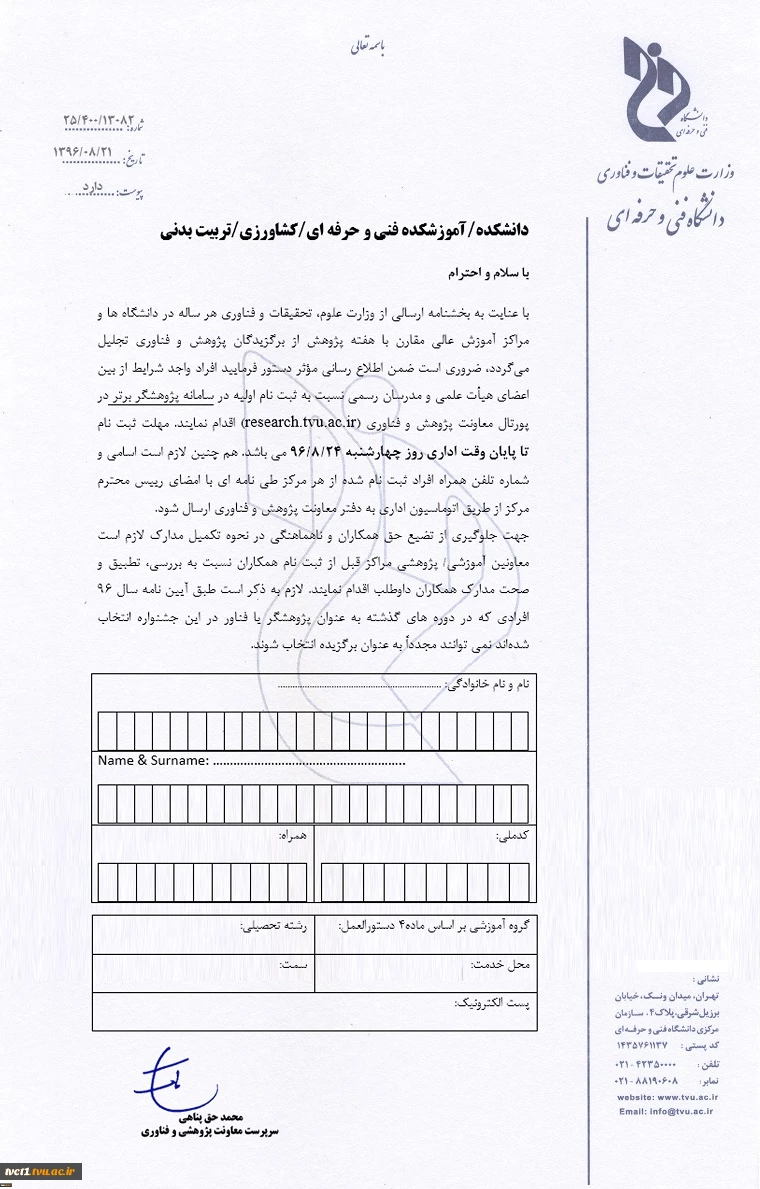 باسمه تعالی
دانشگاه
فنی و حرفه ای
وزارت علوم تحقیقات و فناوری
دانشگاه فنی و حرفه ای
شماره: ۲۵/۴۰۰/۱۳۰۸۲
تاریخ: ۱۳۹۶/۰۸/۲۱
پیوست: دارد
دانشکده/ آموزشکده فنی و حرفه ای/کشاورزی/تربیت بدنی
با سلام و احترام
با عنایت به بخشنامه ارسالی از وزارت علوم، تحقیقات و فناوری هر ساله در دانشگاه ها و
مراکز آموزش عالی مقارن با هفته پژوهش از برگزیدگان پژوهش و فناوری تجلیل
می‌گردد، ضروری است ضمن اطلاع رسانی مؤثر دستور فرمایید افراد واجد شرایط از بین
اعضای هیأت علمی و مدرسان رسمی نسبت به ثبت نام اولیه در سامانه پژوهشگر برتر در
پورتال معاونت پژوهش و فناوری (research.tvu.ac.ir) اقدام نمایند. مهلت ثبت نام
تا پایان وقت اداری روز چهارشنبه ۹۶/۸/۲۴ می باشد. هم چنین لازم است اسامی و
شماره تلفن همراه افراد ثبت نام شده از هر مرکز طی نامه ای با امضای رییس محترم
مرکز از طریق اتوماسیون اداری به دفتر معاونت پژوهش و فناوری ارسال شود.
جهت جلوگیری از تضیع حق همکاران و ناهماهنگی در نحوه تکمیل مدارک لازم است
معاونین آموزشی/ پژوهشی مراکز قبل از ثبت نام همکاران نسبت به بررسی، تطبیق و
صحت مدارک همکاران داوطلب اقدام نمایند. لازم به ذکر است طبق آیین نامه سال ۹۶
افرادی که در دوره های گذشته به عنوان پژوهشگر یا فناور در این جشنواره انتخاب
شده‌اند نمی توانند مجدداً به عنوان برگزیده انتخاب شوند.
نام و نام خانوادگی: ..................................................................
Name & Surname: ........................................................
کدملی:
همراه:
گروه آموزشی بر اساس ماده۴ دستورالعمل:
رشته تحصیلی:
محل خدمت:
سمت:
پست الکترونیک:
محمد حق پناهی
سرپرست معاونت پژوهشی و فناوری
نشانی :
تهران، میدان ونک، خیابان
برزیل شرقی، پلاک۴، سازمان
مرکزی دانشگاه فنی و حرفه‌ای
کد پستی : ۱۴۳۵۷۶۱۱۳۷
تلفن : ۴۲۳۵۰۰۰۰ - ۰۲۱
نمابر: ۸۸۱۹۰۶۰۸ - ۰۲۱
website: www.tvu.ac.ir
Email: info@tvu.ac.ir
tvct1.tvu.ac.ir